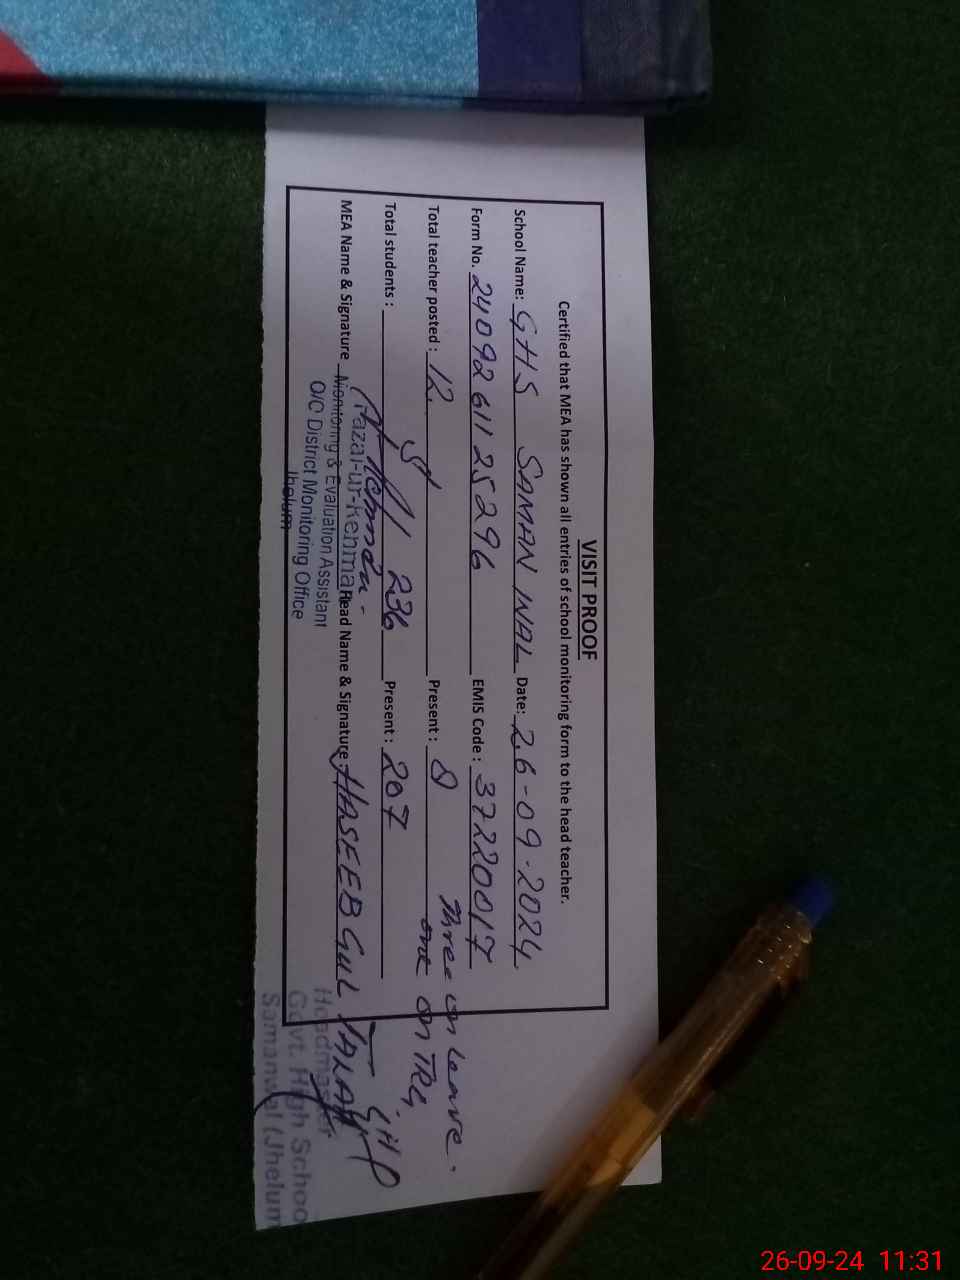 VISIT PROOF
Certified that MEA has shown all entries of school monitoring form to the head teacher.
School Name: GHS SAMAN WAL Date: 26-09-2024
Form No. 2409261125296 EMIS Code: 37220017
Three on leave.
Total teacher posted: 12 Present: 8 one on TRG,
Total students: 236 Present: 207
MEA Name & Signature Head Name & Signature: HASEEB GUL
Monitoring & Evaluation Assistant
O/C District Monitoring Office
Jhelum
Headmaster
Govt. High School
Samanwal (Jhelum
26-09-24 11:31